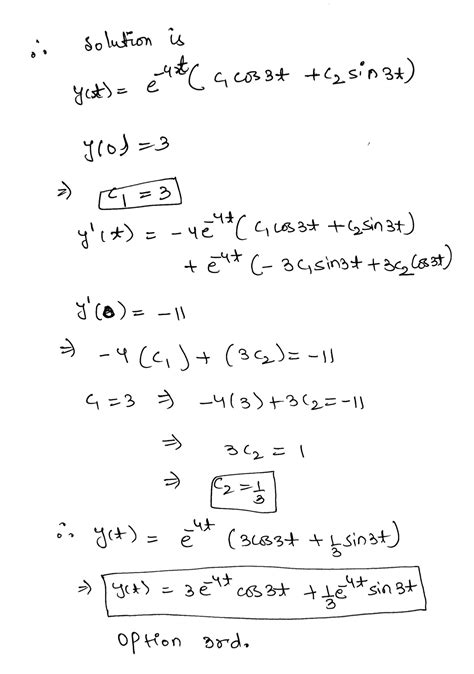 ∴ Solution is
y(t) = e^-4t ( C₁ cos3t + C₂ sin3t)
y(0) = 3
⇒ C₁ = 3
y'(t) = -4e^-4t ( C₁ cos3t + C₂ sin3t)
+ e^-4t (- 3C₁ sin3t + 3C₂ cos3t)
y'(0) = -11
⇒ -4 (C₁) + (3C₂) = -11
C₁ = 3 ⇒ -4(3) + 3C₂ = -11
⇒ 3C₂ = 1
⇒ C₂ = 1/3
∴ y(t) = e^-4t (3cos3t + 1/3 sin3t)
⇒ y(t) = 3e^-4t cos3t + 1/3 e^-4t sin3t
Option 3rd.